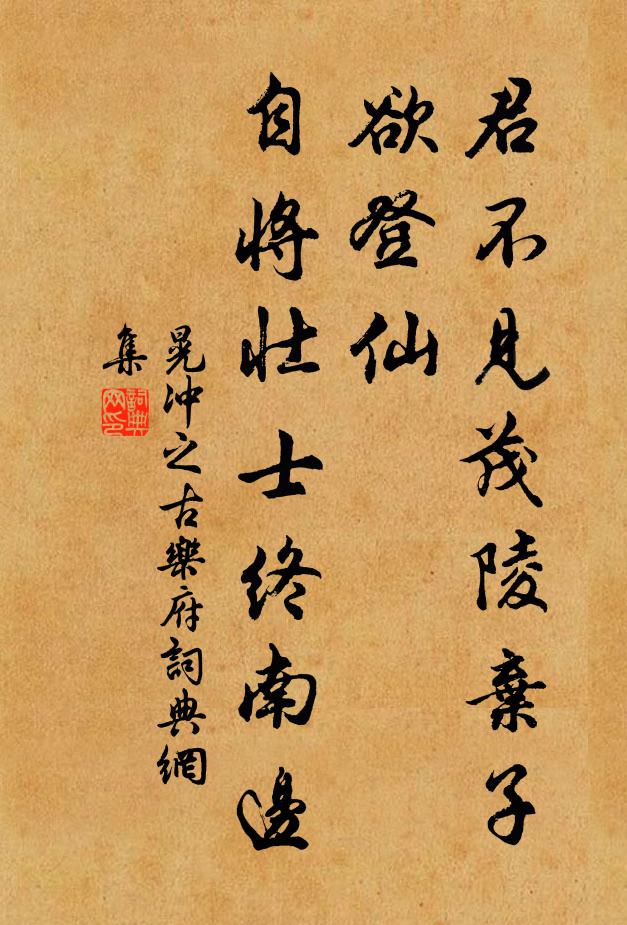 君不見茂陵棄子
欲登仙
自將壯士終南邊
晁沖之古樂府詞典網
集
詞典
网印